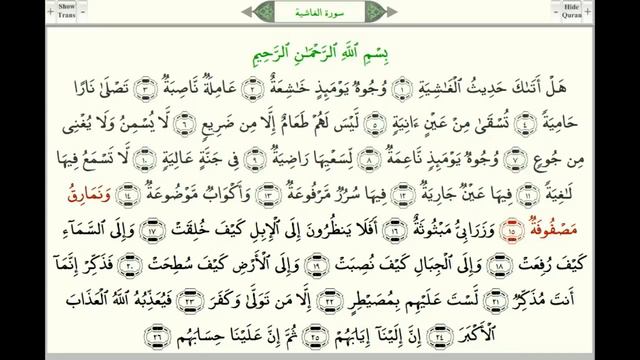 Show Trans
سورة الغاشية
Hide Quran
بِسْمِ ٱللَّهِ ٱلرَّحْمَـٰنِ ٱلرَّحِيمِ
هَلْ أَتَىٰكَ حَدِيثُ ٱلْغَـٰشِيَةِ ١ وُجُوهٌ يَوْمَئِذٍ خَـٰشِعَةٌ ٢ عَامِلَةٌ نَّاصِبَةٌ ٣ تَصْلَىٰ نَارًا
حَامِيَةً ٤ تُسْقَىٰ مِنْ عَيْنٍ ءَانِيَةٍ ٥ لَّيْسَ لَهُمْ طَعَامٌ إِلَّا مِن ضَرِيعٍ ٦ لَّا يُسْمِنُ وَلَا يُغْنِى
مِن جُوعٍ ٧ وُجُوهٌ يَوْمَئِذٍ نَّاعِمَةٌ ٨ لِّسَعْيِهَا رَاضِيَةٌ ٩ فِى جَنَّةٍ عَالِيَةٍ ١٠ لَّا تَسْمَعُ فِيهَا
لَـٰغِيَةً ١١ فِيهَا عَيْنٌ جَارِيَةٌ ١٢ فِيهَا سُرُرٌ مَّرْفُوعَةٌ ١٣ وَأَكْوَابٌ مَّوْضُوعَةٌ ١٤ وَنَمَارِقُ
مَصْفُوفَةٌ ١٥ وَزَرَابِىُّ مَبْثُوثَةٌ ١٦ أَفَلَا يَنظُرُونَ إِلَى ٱلْإِبِلِ كَيْفَ خُلِقَتْ ١٧ وَإِلَى ٱلسَّمَآءِ
كَيْفَ رُفِعَتْ ١٨ وَإِلَى ٱلْجِبَالِ كَيْفَ نُصِبَتْ ١٩ وَإِلَى ٱلْأَرْضِ كَيْفَ سُطِحَتْ ٢٠ فَذَكِّرْ إِنَّمَآ
أَنتَ مُذَكِّرٌ ٢١ لَّسْتَ عَلَيْهِم بِمُصَيْطِرٍ ٢٢ إِلَّا مَن تَوَلَّىٰ وَكَفَرَ ٢٣ فَيُعَذِّبُهُ ٱللَّهُ ٱلْعَذَابَ
ٱلْأَكْبَرَ ٢٤ إِنَّ إِلَيْنَآ إِيَابَهُمْ ٢٥ ثُمَّ إِنَّ عَلَيْنَا حِسَابَهُم ٢٦